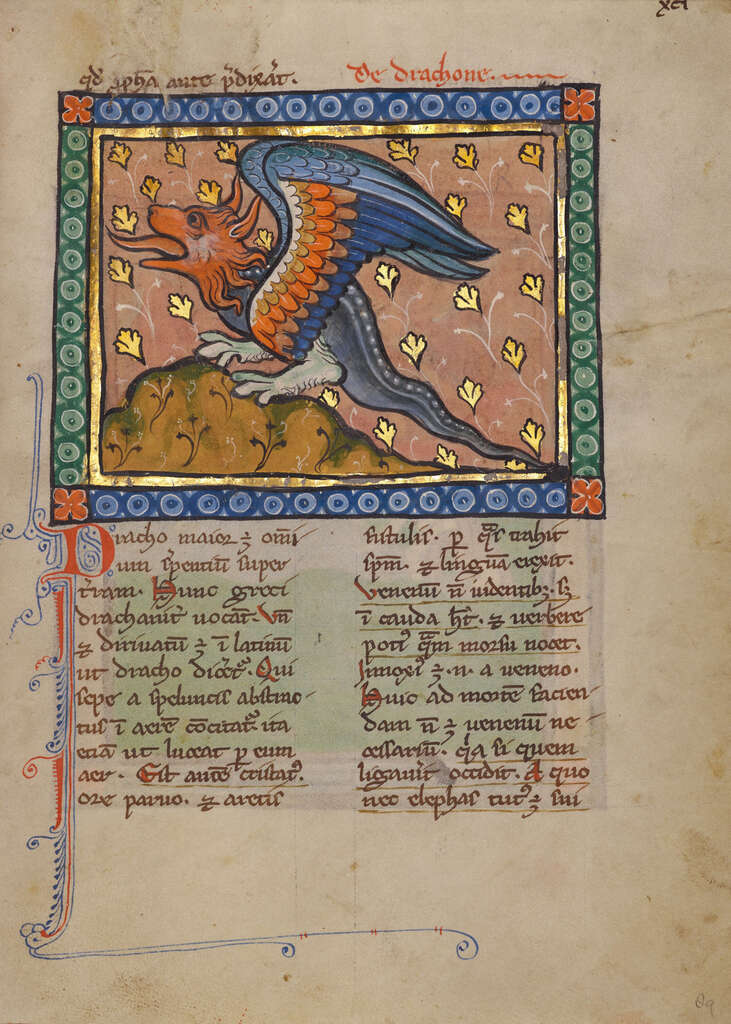 xci
qd̄ ꝓph̄a ante p̄dixāt.
De drachone.
Dracho maior ⁊ om̄i
um ṡpentiū super
t̄ram. Hunc greci
drachanīt uocāt. Vn̄
⁊ diriuatū ⁊ ī latinū
ut dracho dicēt᷑. Qui
sepe a speluncis abstrac
tus ī aerē cōcitat᷑. ita
etiā ut luceat ꝑ eum
aer. Est autē cristat᷒.
ore paruo. ⁊ artis
fistulis. ꝑ qͣs trahit
sp̄m. ⁊ linguā exerit.
Venenū n̄ ī dentib; s;
ī cauda h̄t. ⁊ uerbere
poti᷒ qͣm morsu nocet.
Innoxi᷒ ⁊ .n. a ueneno.
Huic ad mortē facien
dam n̄ ⁊ uenenū ne
cessariū. qͥa si quem
ligauīt occidit. A quo
nec elephas tut᷒ ⁊ sui
89